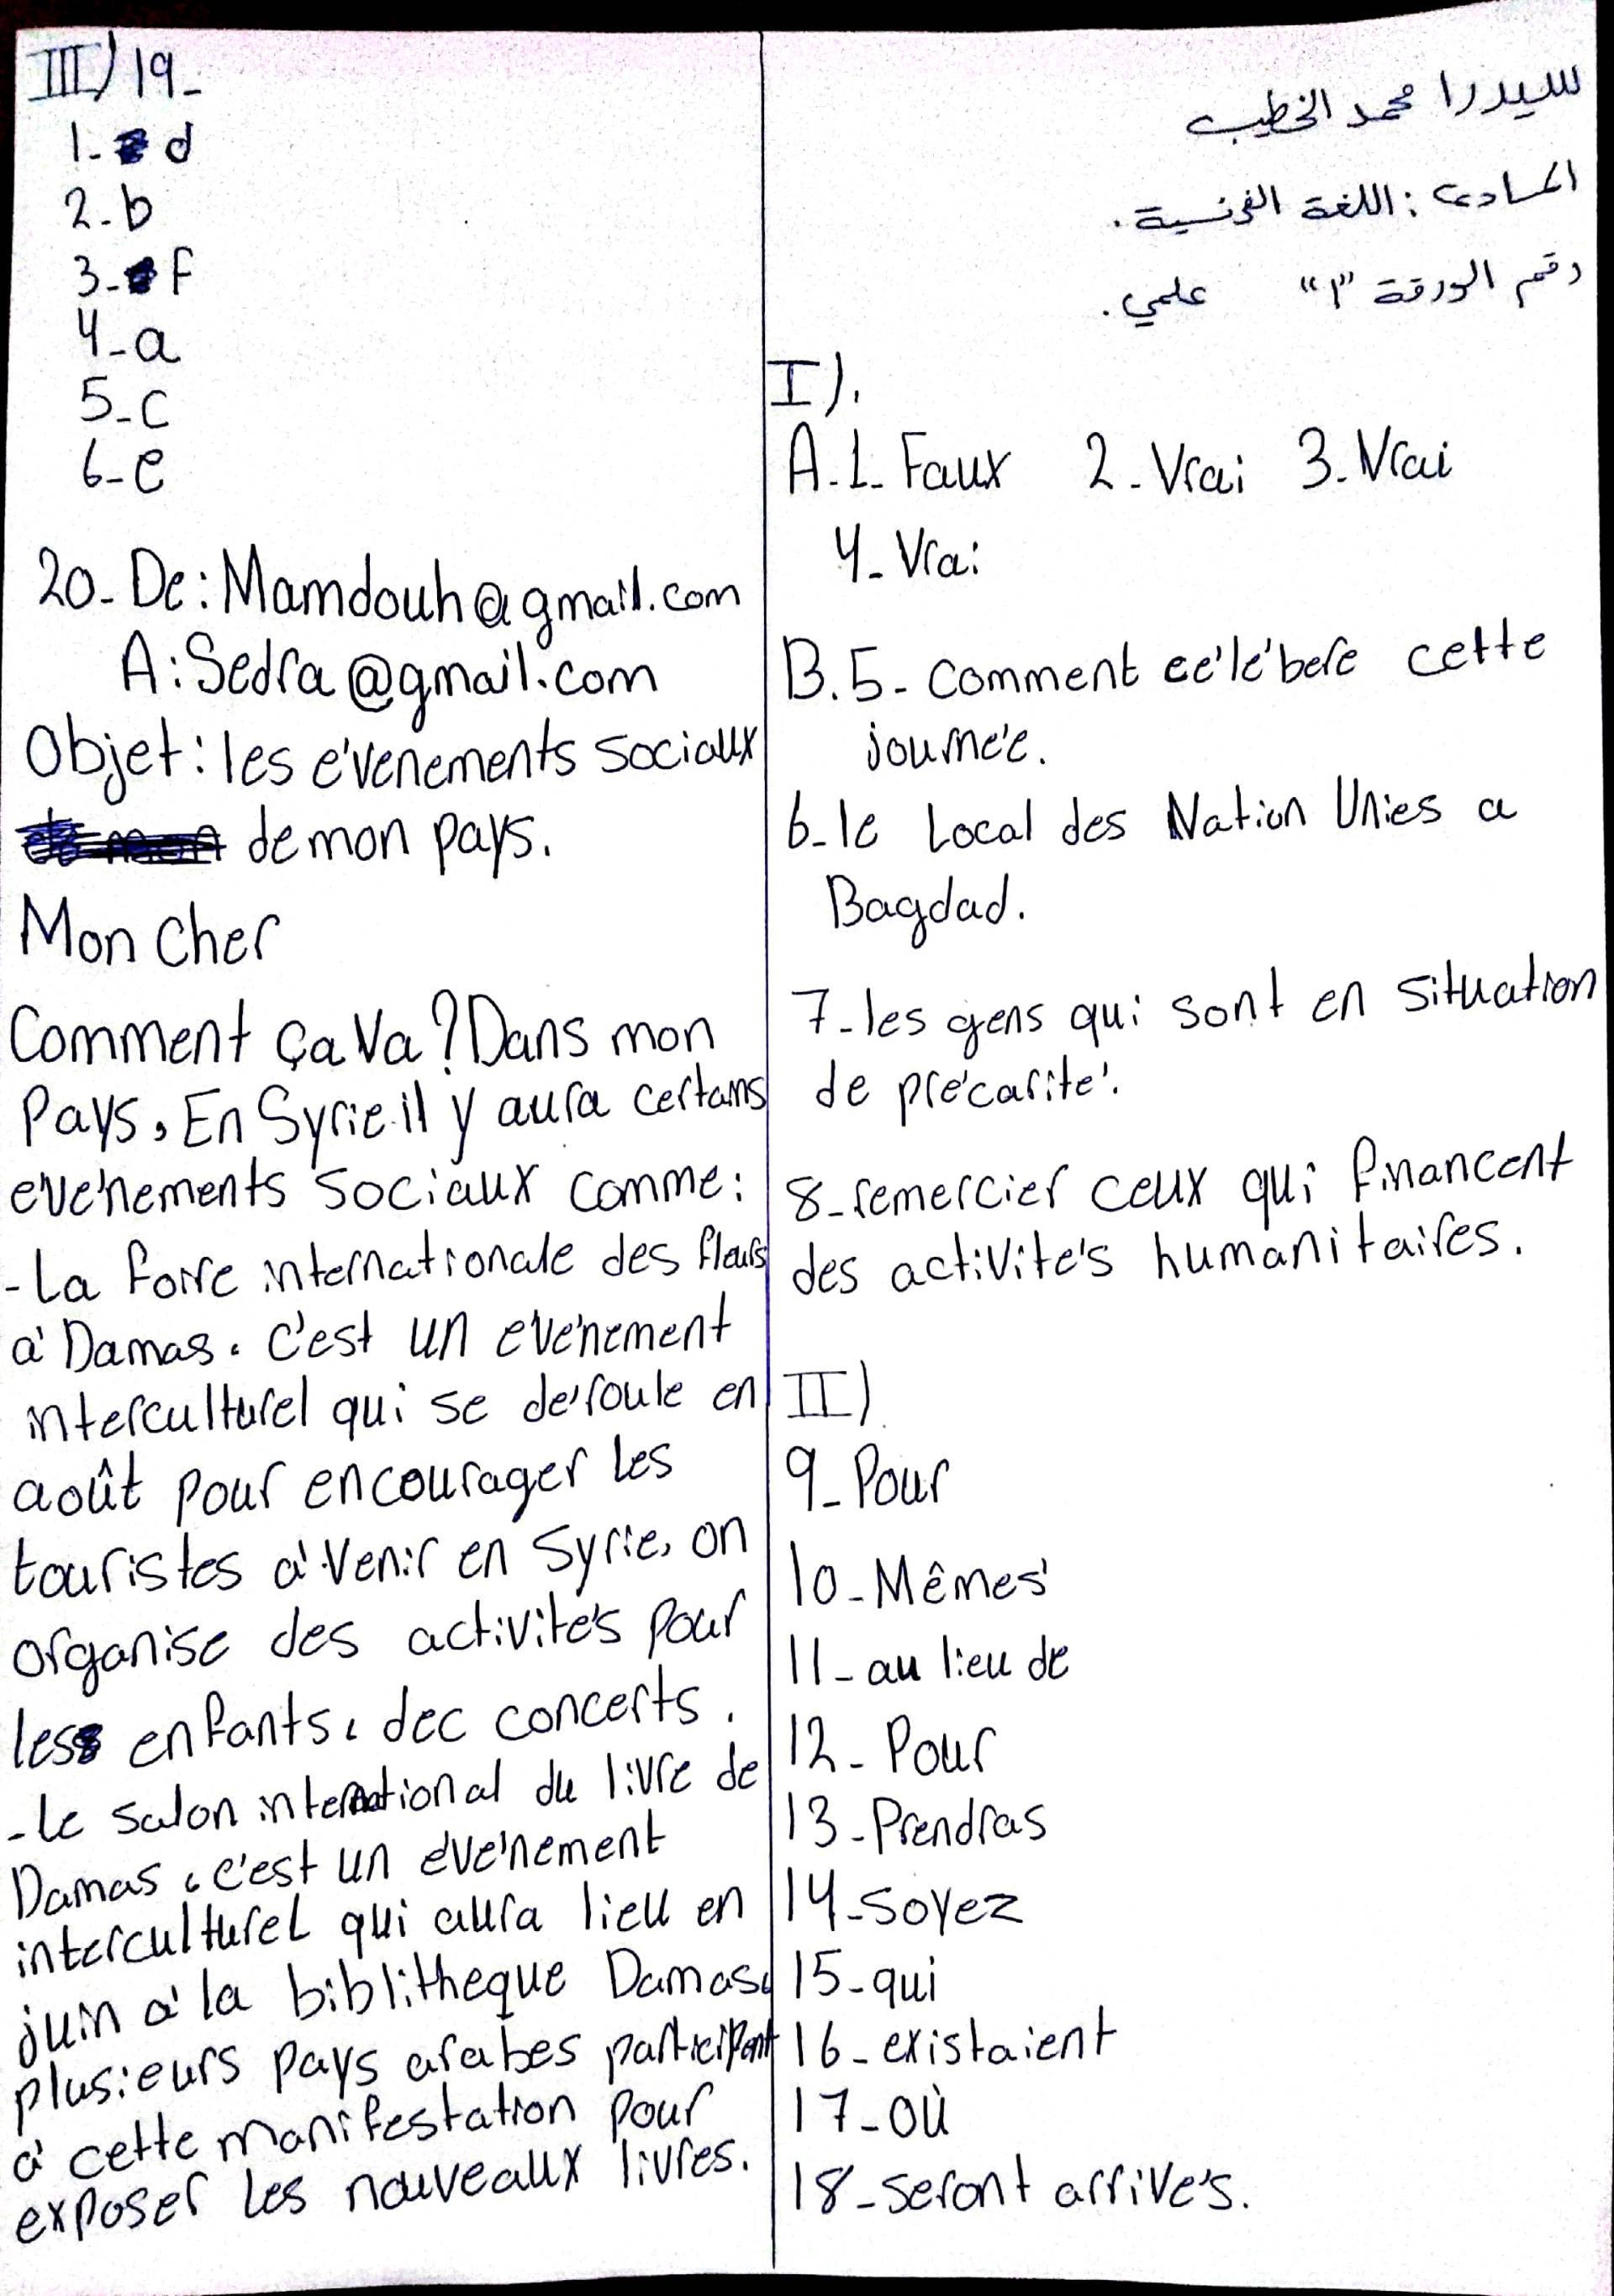 سيدرا محمد الخطيب
المادة: اللغة الفرنسية.
رقم الورقة "1" علمي.
I).
A.1. Faux 2. Vrai 3. Vrai
4. Vrai
B.5- comment célébere cette
journée.
6-le Local des Nation Unies a
Bagdad.
7-les gens qui sont en situation
de précarité.
8-remercier ceux qui financent
des activités humanitaires.
II)
9-Pour
10-Mêmes
11-au lieu de
12-Pour
13-Prendras
14-soyez
15-qui
16-existaient
17-où
18-seront arrivés.
III) 19-
1- d
2-b
3- f
4-a
5-c
6-e
20-De: Mamdouh@gmail.com
A: Sedra@gmail.com
Objet: les évenements sociaux
de mon pays.
Mon cher
Comment ça va? Dans mon
Pays, En Syrie il y aura certains
evénements sociaux comme:
-La foire internationale des fleurs
à Damas. c'est un evénement
interculturel qui se déroule en
août pour encourager les
touristes à venir en Syrie, on
organise des activités pour
les enfants, dec concerts.
-le salon international du livre de
Damas, c'est un événement
interculturel qui aura lieu en
juin à la biblitheque Damas,
plusieurs pays arabes participent
à cette manifestation pour
exposer les nouveaux livres.